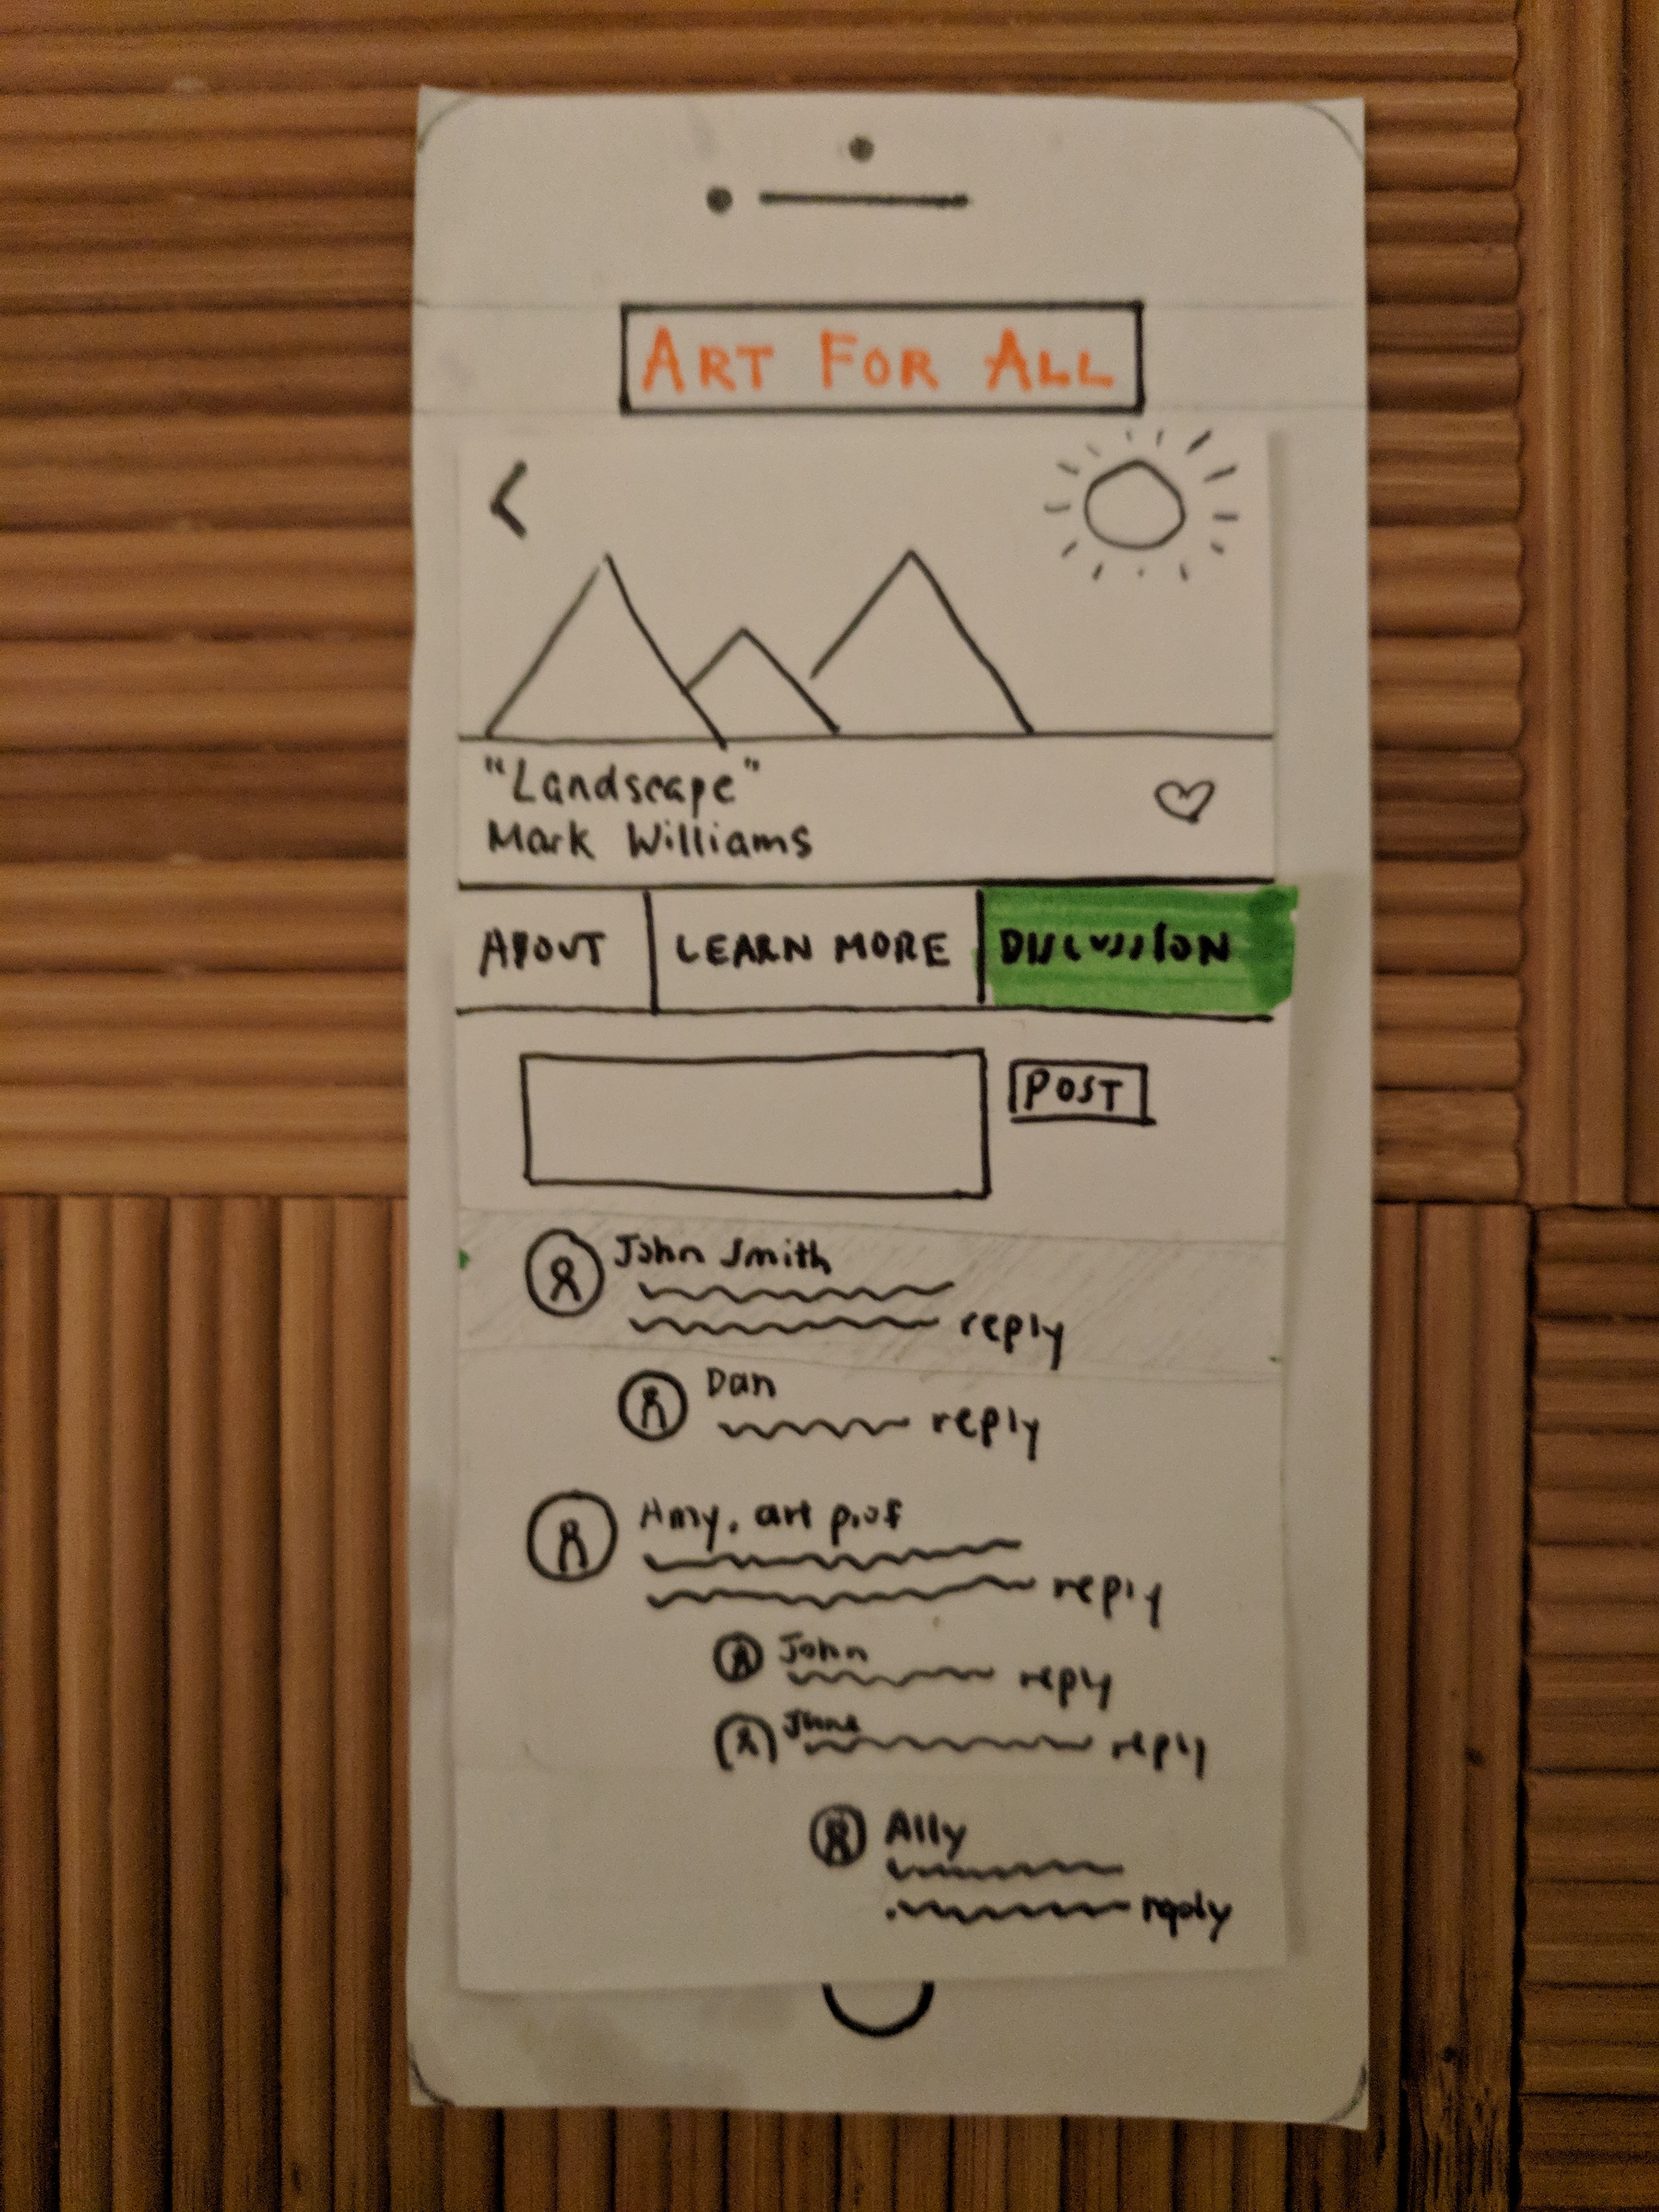 ART FOR ALL
"Landscape"
Mark Williams
ABOUT LEARN MORE DISCUSSION
POST
John Smith
reply
Dan
reply
Amy, art prof
reply
John
reply
reply
Ally
reply